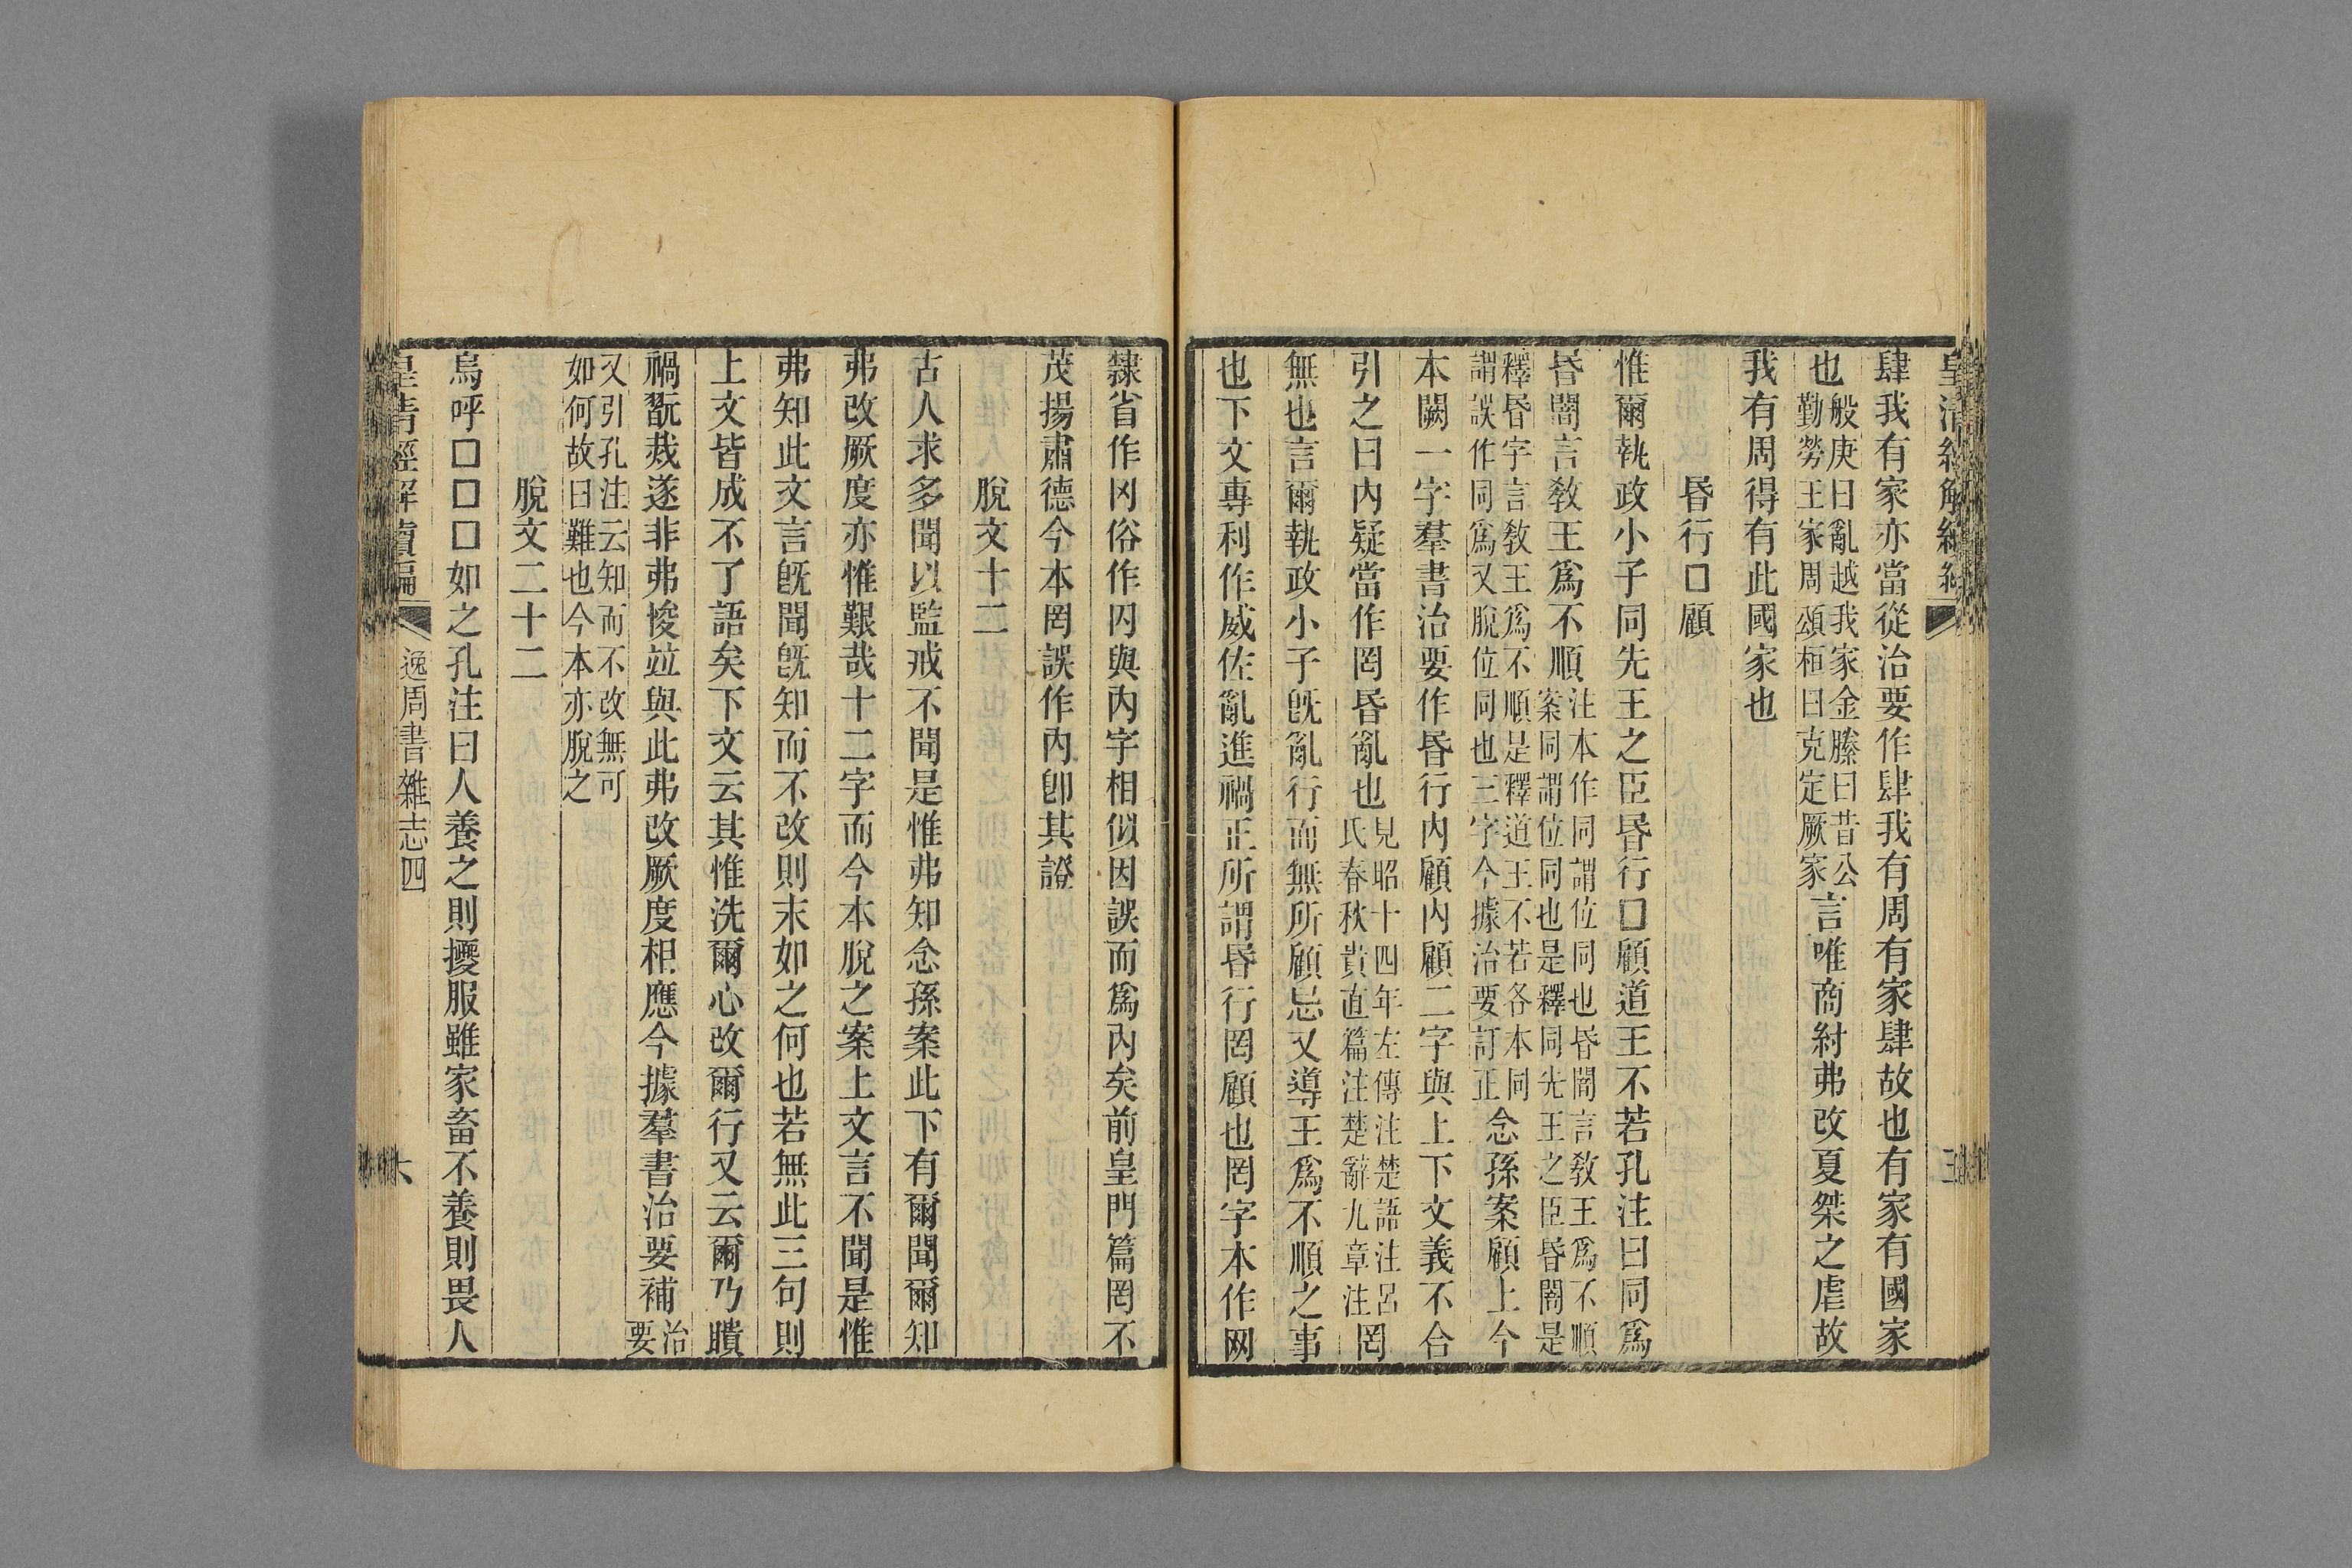 肆我有家亦當從治要作肆我有周有家肆故也有家有國家
也般庚曰亂越我家金縢曰昔公勤勞王家周頌桓曰克定厥家言唯商紂弗改夏桀之虐故
我有周得有此國家也
昏行□顧
惟爾執政小子同先王之臣昏行□顧道王不若孔注曰同爲
昏闇言教王爲不順注本作同謂位同也昏闇言教王爲不順案同謂位同也是釋同先王之臣昏闇是
釋昏字言教王爲不順是釋道王不若各本同謂誤作同爲又脫位同也三字今據治要訂正念孫案顧上今
本闕一字羣書治要作昏行內顧內顧二字與上下文義不合
引之曰內疑當作罔昏亂也見昭十四年左傳注楚語注呂氏春秋貴直篇注楚辭九章注罔
無也言爾執政小子旣亂行而無所顧忌又導王爲不順之事
也下文專利作威佐亂進禍正所謂昏行罔顧也罔字本作网
隸省作冈俗作囚與內字相似因誤而爲內矣前皇門篇罔不
茂揚肅德今本罔誤作內卽其證
脫文十二
古人求多聞以監戒不聞是惟弗知念孫案此下有爾聞爾知
弗改厥度亦惟艱哉十二字而今本脫之案上文言不聞是惟
弗知此文言旣聞旣知而不改則末如之何也若無此三句則
上文皆成不了語矣下文云其惟洗爾心改爾行又云爾乃聵
禍翫烖遂非弗悛竝與此弗改厥度相應今據羣書治要補治要
又引孔注云知而不改無可如何故曰難也今本亦脫之
脫文二十二
烏呼□□□如之孔注曰人養之則擾服雖家畜不養則畏人
皇清經解續編
逸周書雜志四
六